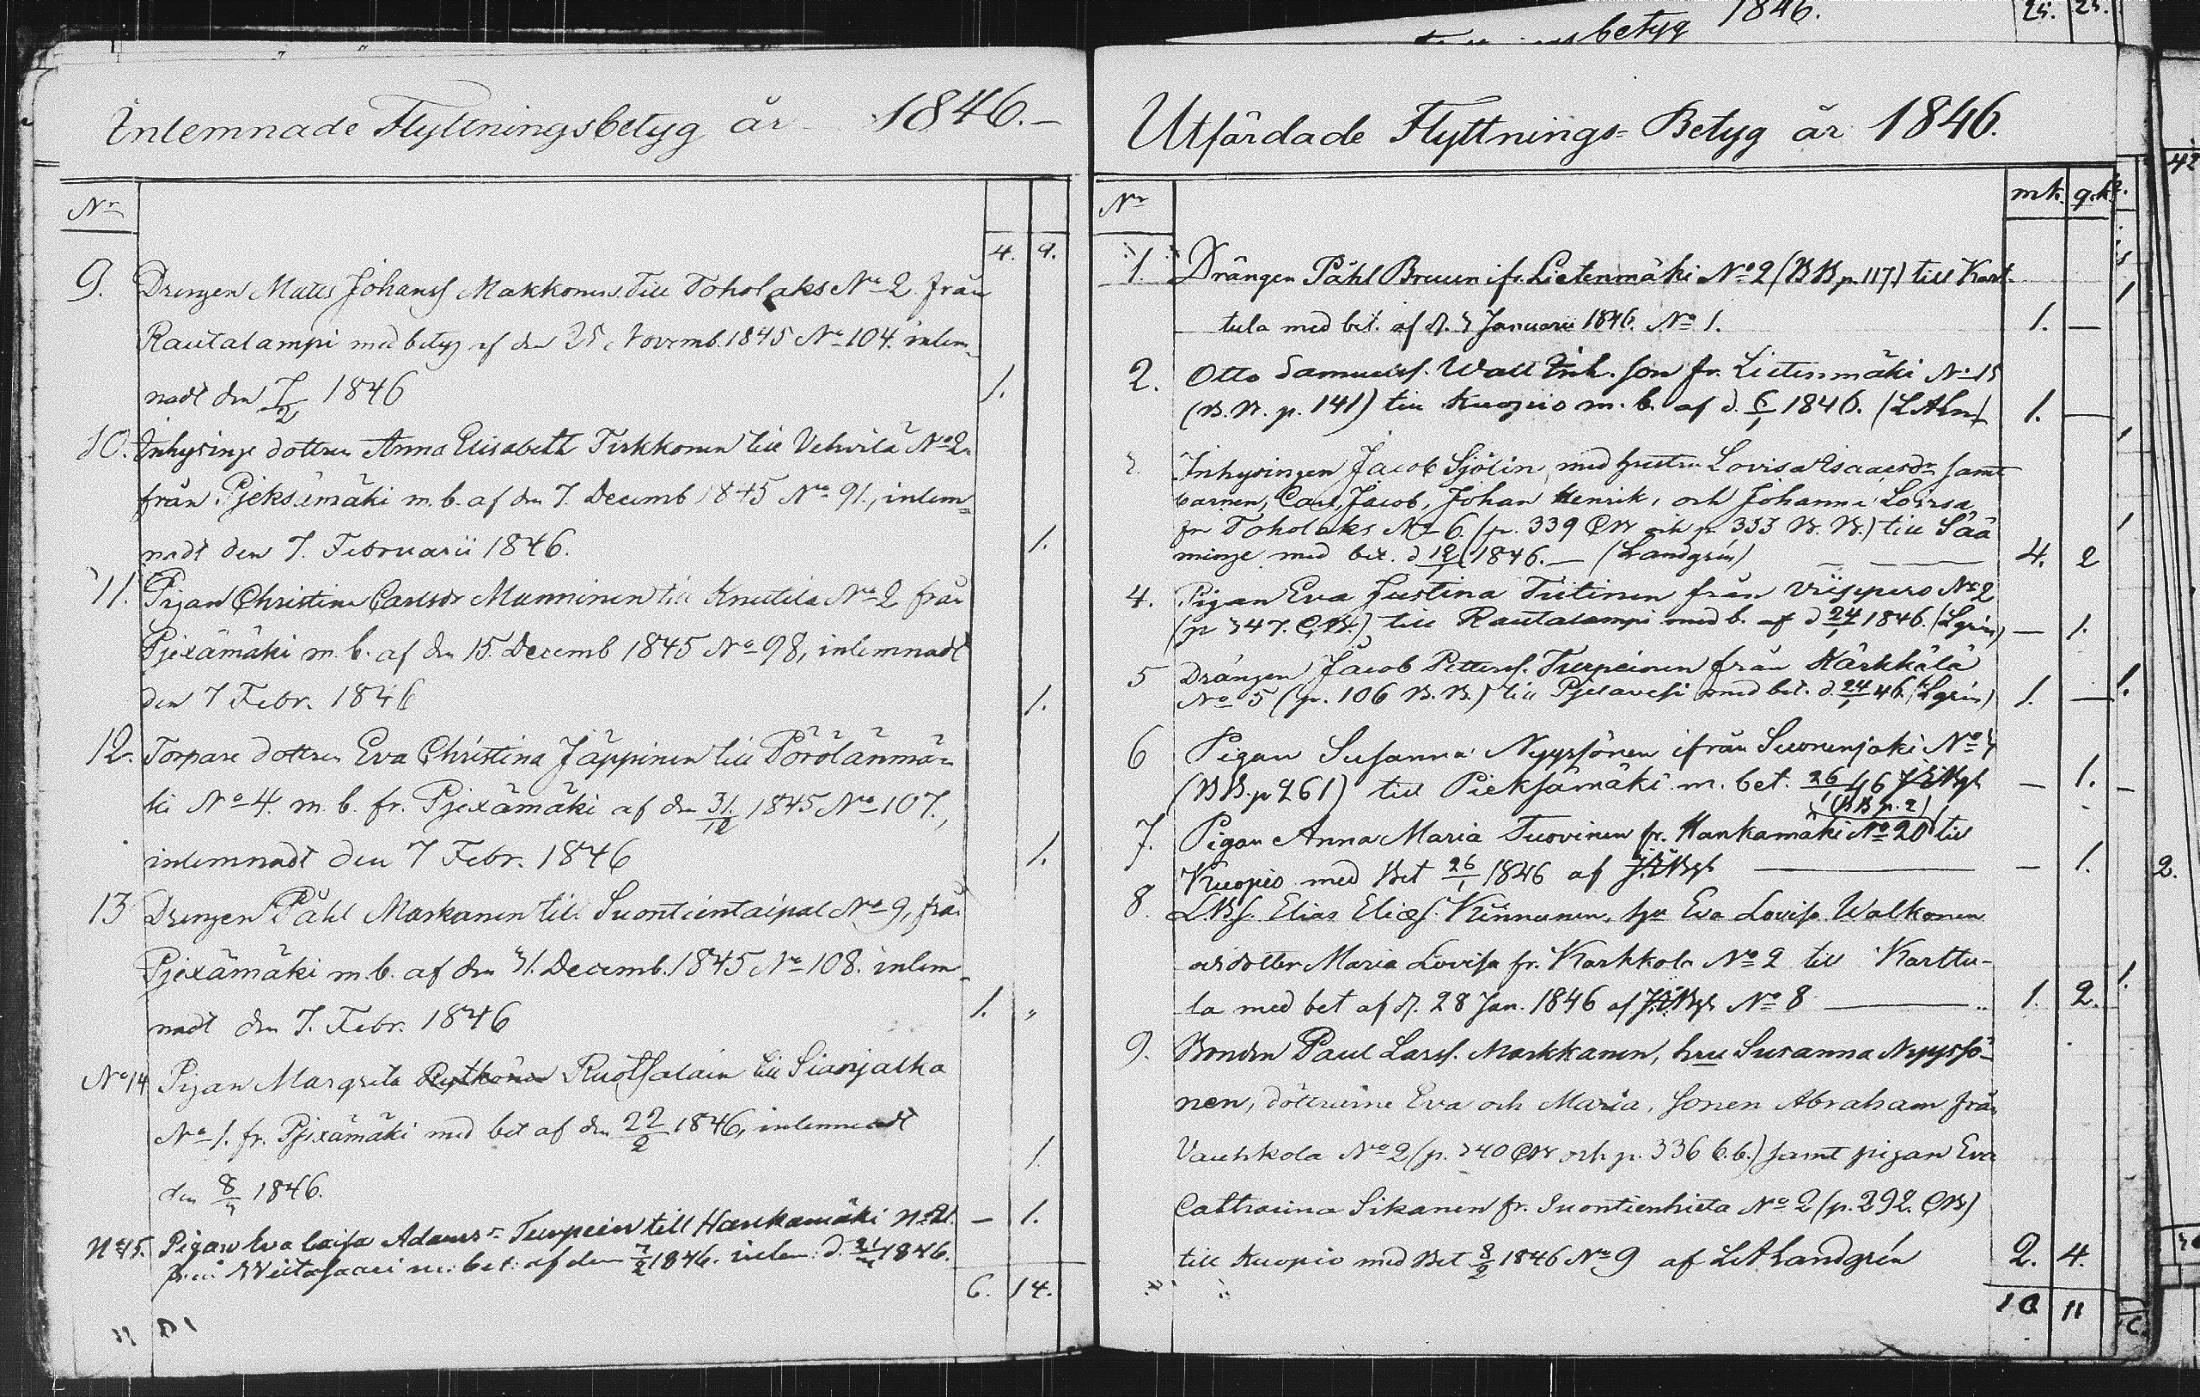 betyg 1846.
25. 25.
Inlemnade Flyttningsbetyg år 1846.
Nr
4. 9.
9. Drengen Mats Johanss Makkonen till Toholaks No 2 från
Rautalampi med betyg af den 25 Novemb. 1845 No 104. inlem-
nadt den 7/2 1846 1.
10. Inhysinge dottren Anna Elisabeth Tirkkonen till Vehvilä No 2
från Pjeksemäki m. b. af den 7. Decemb 1845 No 91., inlem-
nadt den 7. Februarii 1846. 1.
11. Pigan Christina Carlsdr Manninen till Knuutila No 2 från
Pjexämäki m. b. af den 15. Decemb 1845 No 98, inlemnadt
den 7 Febr. 1846 1.
12. Torpare dottren Eva Christina Jäppinen till Pörölänmä-
ki No 4. m. b. fr. Pjexämäki af den 31/12 1845 No 107.,
inlemnadt den 7 Febr. 1846 1.
13 Drengen Påhl Markanen till Suontientaipal No 9, från
Pjexämäki m. b. af den 31. Decemb. 1845 No 108. inlem-
nadt den 7. Febr. 1846 1. "
No 14 Pigan Margreta Rytkönen Ruotsalain till Sianjalka
No 1. fr. Pjexämäki med bet af den 22/2 1846, inlemnadt
den 8/ 1846. 1.
No 15. Pigan Eva Caisa Adamsr Turpein till Hankamäki No 21. — 1.
från Wiitasaari m. bet. af den 7/2 1846. inlem: d. 21/ 1846.
6. 14.
Utfärdade Flyttnings-Betyg år 1846.
Nr mk. q.k.
1. Drängen Påhl Bruun ifr. Lietenmäki No 2 (BB p. 117.) till Kart-
tula med bet. af d. 3 Januarii 1846. No 1. 1. —
2. Otto Samuelss. Wall Inh. son fr. Lietenmäki No 15
(B. B. p. 141) till Kuopio m. b. af d. 6/1 1846. (LAln) 1. —
Inhysingen Jacob Sjölin, med hustrun Lovisa Isaacsdr samt
barnen, Carl Jacob, Johan Henrik, och Johanna Lovisa,
fr Toholaks No 6. (p. 339 CB och p 333 B. B.) till Sää-
minge med bet. d 12/1 1846. — (Landgrén) 4. 2
4. Pigan Eva Justina Tiitinen från Viippero No 2
(p 347. C.B.) till Rautalampi med b. af d 24/1 1846. (Lgrén) — 1.
5 Drängen Jacob Petterss. Turpeinen från Kärkkälä
No 5 (p. 106 B. B.) till Pjelavesi med bet. d. 24/1 46. (Lgrén) 1. —
6 Pigan Susanna Nyyssönen ifrån Suonenjoki No
(BB. p 261) till Pieksämäki m. bet. 26/1 46 — 1.
(BB p. 2)
7. Pigan Anna Maria Tuovinen fr. Hankamäki No 20 till
Kuopio med Bet 26/1 1846 af — 1.
8. L.Bs. Elias Eliæs. Kinnunen, hu Eva Lovisa Walkonen
och dotter Maria Lovisa fr. Karkkola No 2 till Karttu-
la med bet af d. 28 Jan. 1846 af No 8 1. 2.
9. Bonden Paul Larss. Markkanen, hru Susanna Nyyssö-
nen, döttrarne Eva och Maria, sonen Abraham från
Vauhkola No 2 (p. 340 CB och p. 336 b.b.) samt pigan Eva
Catharina Sikanen fr. Suontienhieta No 2 (p. 292. CB)
till Kuopio med Bet 8/2 1846 No 9 af LALandgrén 2. 4.
10 11